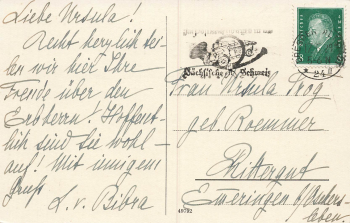 Liebe Ursula!
Recht herzlich tei-
len wir hier Ihre
Freude über den
Erbherrn. Hoffent-
lich sind Sie wohl-
auf! Mit innigem
Gruß
L. v. Bibra
Sächsische Schweiz
8
* 24
Frau Ursula
geb. Roemmer
Rittergut
Emeringen b/
leben.
49792